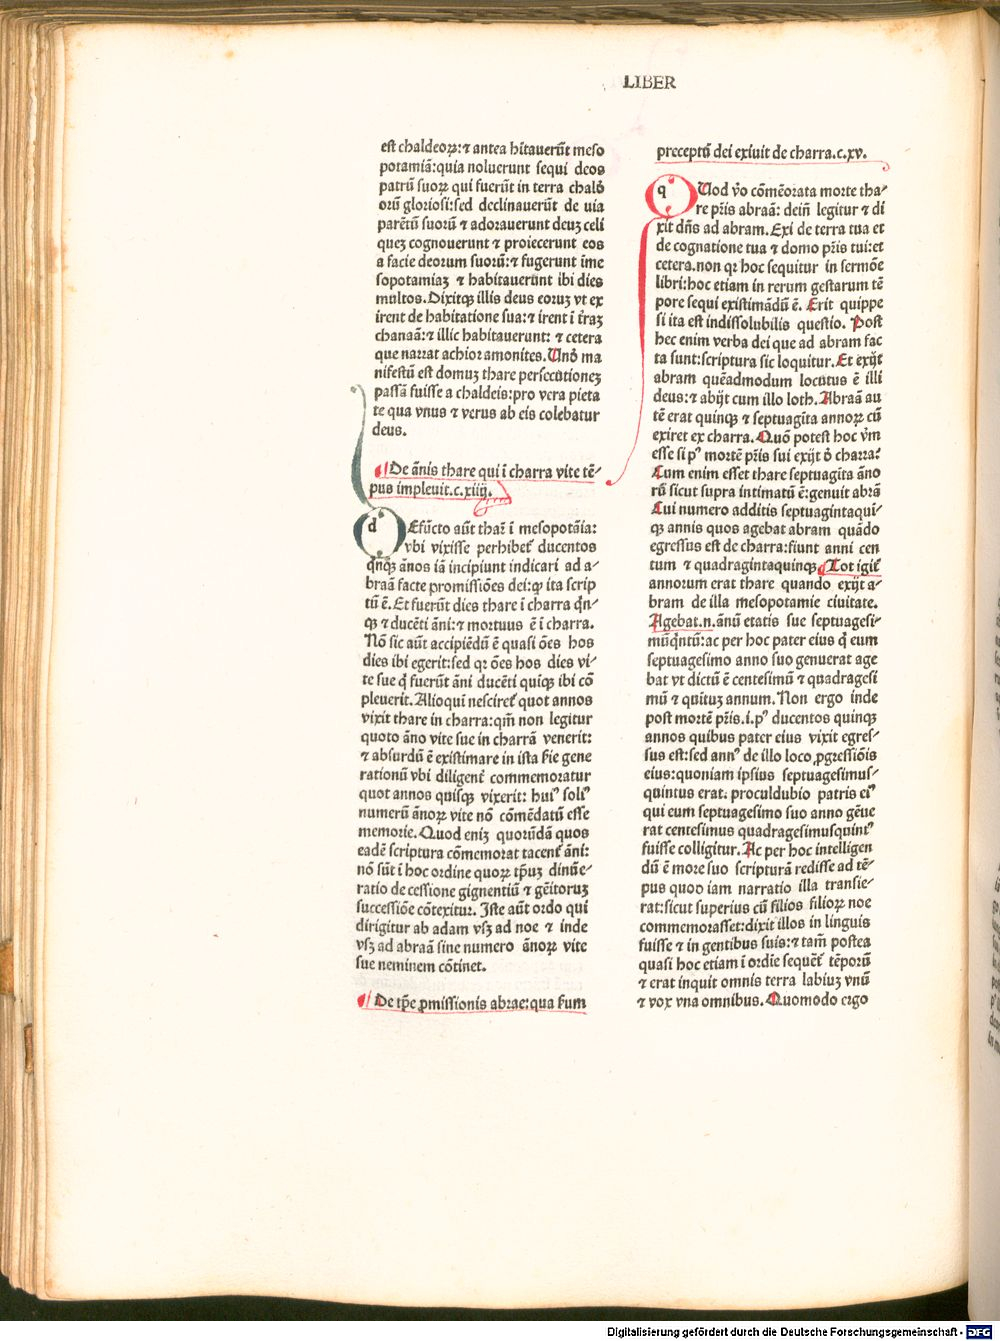 LIBER
est chaldeoꝝ:⁊ antea hĩtauerũt meso
potamiã:quia noluerunt sequi deos
patrũ suoꝝ qui fuerũt in terra chald
orũ gloriosi:sed declinauerũt de uia
parẽtũ suorũ ⁊ adorauerunt deuʒ celi
queʒ cognouerunt ⁊ proiecerunt eos
a facie deorum suorũ:⁊ fugerunt ĩme
sopotamiaʒ ⁊ habitauerũnt ibi dies
multos.Dixitqʒ illis deus eoruʒ vt ex
irent de habitatione sua:⁊ irent ĩ t̃raʒ
chanaã:⁊ illic habitauerunt: ⁊ cetera
que narrat achior amonites.Unð ma
nifestũ est domuʒ thare persecutioneʒ
passã fuisse a chaldeis:pro vera pieta
te qua vnus ⁊ verus ab eis colebatur
deus.
De ãnis thare qui ĩ charra vite tẽ-
pus impleuit.c.xiiij.
d Efũcto aũt thar̃ ĩ mesopotãia:
vbi vixisse perhibet̃ ducentos
q̃nqʒ ãnos iã incipiunt indicari ad a-
braã facte promissiões dei:qꝫ ita scrip
tũ ẽ.Et fuerũt dies thare ĩ charra q̃n-
qʒ ⁊ ducẽti ãni:⁊ mortuus ẽ ĩ charra.
Nõ sic aũt accipiẽdũ ẽ quasi ões hos
dies ibi egerit:sed qꝛ ões hos dies vi-
te sue q̃ fuerũt ãni ducẽti quiqʒ ibi cõ
pleuerit.Alioqui nesciret̃ quot annos
vixit thare in charra:qm̃ non legitur
quoto ãno vite sue in charrã venerit:
⁊ absurdũ ẽ existimare in ista s̃ie gene
rationũ vbi diligent̃ commemoratur
quot annos quisqʒ vixerit: huiꝰ soliꝰ
numerũ ãnoꝝ vite nõ cõmẽdatũ esse
memorie.Quod eniʒ quorũdã quos
eadẽ scriptura cõmemorat tacent̃ ãni:
nõ sũt ĩ hoc ordine quoꝝ tp̃uʒ dinũe-
ratio decessione gignentiũ ⁊ gẽitoruʒ
successiõe cõtexitur. Iste aũt ordo qui
dirigitur ab adam vsʒ ad noe ⁊ inde
vsʒ ad abraã sine numero ãnoꝝ vite
sue neminem cõtinet.
De tp̃e ꝓmissionis abrae:qua s̃um
preceptũ dei exiuit de charra.c.xv.
q Uod ṽo cõmẽorata morte tha-
re pr̃is abraã: dein̄ legitur ⁊ di
xit dñs ad abram.Exi de terra tua et
de cognatione tua ⁊ domo pr̃is tui:et
cetera.non qꝛ hoc sequitur in sermõe
libri:hoc etiam in rerum gestarum tẽ
pore sequi existimãdũ ẽ. Erit quippe
si ita est indissolubilis questio. Post
hec enim verba dei que ad abram fac
ta sunt:scriptura sic loquitur.Et exijt
abram quẽadmodum locutus ẽ illi
deus:⁊ abijt cum illo loth.Abraã au
tẽ erat quinqʒ ⁊ septuagĩta annoꝝ cũ
exiret ex charra.Quõ potest hoc ṽm
esse si pꝰ mortẽ pr̃is sui exijt ð charra?
Cum enim esset thare septuagita ãno
rũ sicut supra intimatũ ẽ:genuit abrã
Cui numero additis septuagintaqui-
qʒ annis quos agebat abram quãdo
egressus est de charra:fiunt anni cen
tum ⁊ quadragintaquinqʒ Tot igit̃
annorum erat thare quando exijt a-
bram de illa mesopotamie ciuitate.
Agebat.n.ãnũ etatis sue septuagesi-
mũq̃ntũ:ac per hoc pater eius q̃ eum
septuagesimo anno suo genuerat age
bat vt dictũ ẽ centesimũ ⁊ quadragesi
mũ ⁊ quĩtuʒ annum. Non ergo inde
post mortẽ pr̃is.i.pꝰ ducentos quinqʒ
annos quibus pater eius vixit egres-
sus est:sed annꝰ de illo loco ꝓgressiõis
eius:quoniam ipsius septuagesimus-
quintus erat: proculdubio patris eiꝰ
qui eum septuagesimo suo anno gẽue
rat centesimus quadragesimusquintꝰ
fuisse colligitur.Ac per hoc intelligen
dũ ẽ more suo scripturã redisse ad tẽ-
pus quod iam narratio illa transie-
rat:sicut superius cũ filios filioꝝ noe
commemorasset:dixit illos in linguis
fuisse ⁊ in gentibus suis:⁊ tam̃ postea
quasi hoc etiam ĩ ordĩe sequẽt̃ tẽporũ
⁊ erat inquit omnis terra labiuʒ vnũ
⁊ vox vna omnibus. Quomodo ergo
Digitalisierung gefördert durch die Deutsche Forschungsgemeinschaft - DFG